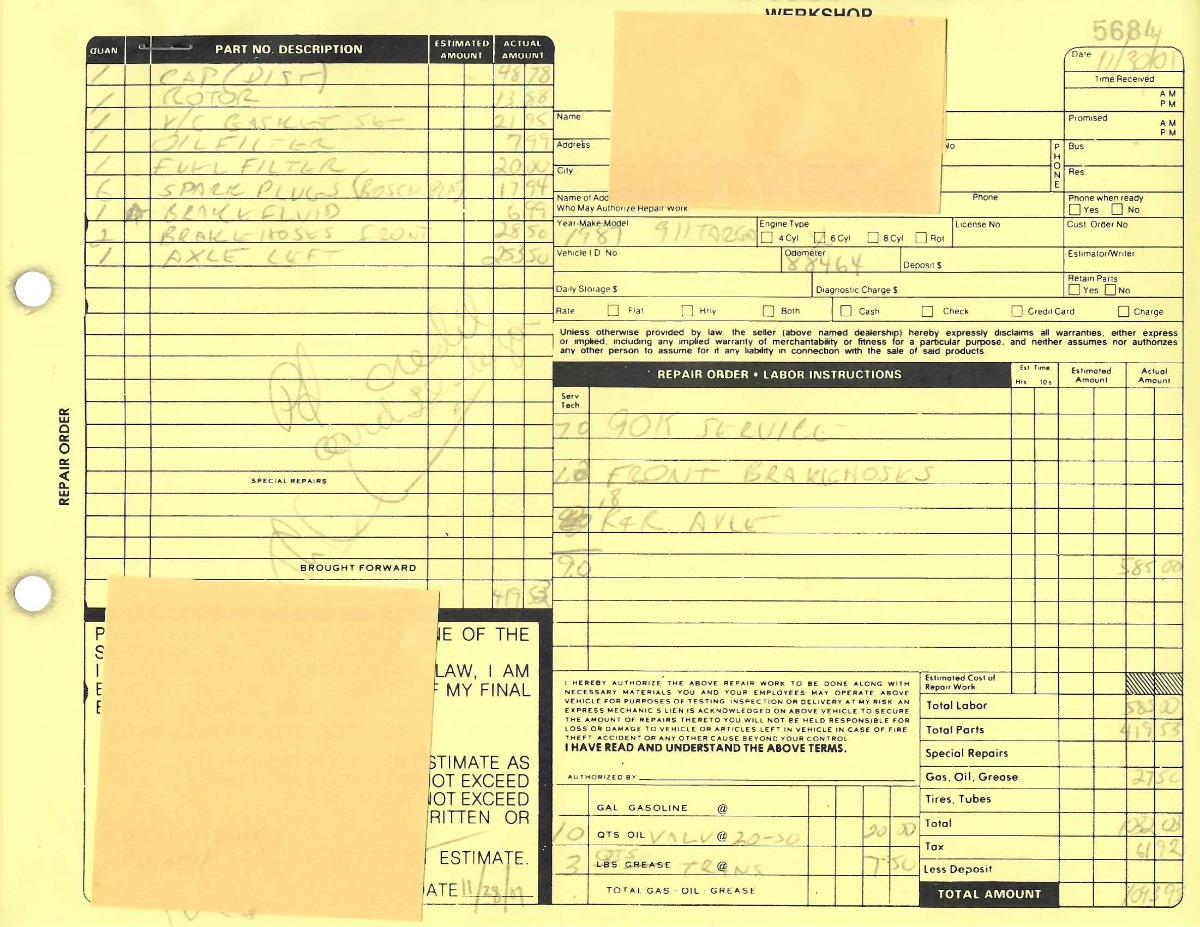 WERKSHOP
5684
Date 11/30/01
Time Received
AM
PM
Promised
AM
PM
QUAN PART NO. DESCRIPTION ESTIMATED AMOUNT ACTUAL AMOUNT
1 CAP (DIST) 48 78
1 ROTOR 13 88
1 V/C GASKET SE 21 95
1 OIL FILTER 7 99
1 FUEL FILTER 20 00
6 SPARK PLUGS (BOSCH 17 94
1 BRAKE FLUID 6 99
2 BRAKE HOSES FRONT 28 50
1 AXLE LEFT 253 50
Pd credit
card
SPECIAL REPAIRS
BROUGHT FORWARD
419 53
REPAIR ORDER
Name
Address
City
No
PHONE
Bus
Res
Name of Add
Who May Authorize Repair Work
Phone
Phone when ready
Yes No
Year-Make-Model 1981 911 TARGA
Engine Type
4 Cyl 6 Cyl 8 Cyl Rot
License No
Cust. Order No
Vehicle I D No
Odometer 88464
Deposit $
Estimator/Writer
Daily Storage $
Diagnostic Charge $
Retain Parts
Yes No
Rate Flat Hrly Both Cash Check Credit Card Charge
Unless otherwise provided by law, the seller (above named dealership) hereby expressly disclaims all warranties, either express
or implied, including any implied warranty of merchantability or fitness for a particular purpose, and neither assumes nor authorizes
any other person to assume for it any liability in connection with the sale of said products.
REPAIR ORDER • LABOR INSTRUCTIONS
Est Time
Hrs 10s
Estimated Amount
Actual Amount
Serv Tech
7.0 90K SERVICE
FRONT BRAKE HOSES
.8
R&R AXLE
9.0 585 00
NE OF THE
LAW, I AM
F MY FINAL
STIMATE AS
OT EXCEED
NOT EXCEED
RITTEN OR
ESTIMATE.
DATE 11/28/01
I HEREBY AUTHORIZE THE ABOVE REPAIR WORK TO BE DONE ALONG WITH
NECESSARY MATERIALS YOU AND YOUR EMPLOYEES MAY OPERATE ABOVE
VEHICLE FOR PURPOSES OF TESTING INSPECTION OR DELIVERY AT MY RISK AN
EXPRESS MECHANIC S LIEN IS ACKNOWLEDGED ON ABOVE VEHICLE TO SECURE
THE AMOUNT OF REPAIRS THERETO YOU WILL NOT BE HELD RESPONSIBLE FOR
LOSS OR DAMAGE TO VEHICLE OR ARTICLES LEFT IN VEHICLE IN CASE OF FIRE
THEFT ACCIDENT OR ANY OTHER CAUSE BEYOND YOUR CONTROL
I HAVE READ AND UNDERSTAND THE ABOVE TERMS.
AUTHORIZED BY
GAL GASOLINE @
10 QTS OIL VALV @ 20-50 20 00
3 QTS LBS GREASE @ TRANS 7 50
TOTAL GAS - OIL - GREASE
Estimated Cost of Repair Work
Total Labor 585 00
Total Parts 419 53
Special Repairs
Gas, Oil, Grease 27 50
Tires, Tubes
Total 1032 03
Tax 61 92
Less Deposit
TOTAL AMOUNT 1093 95